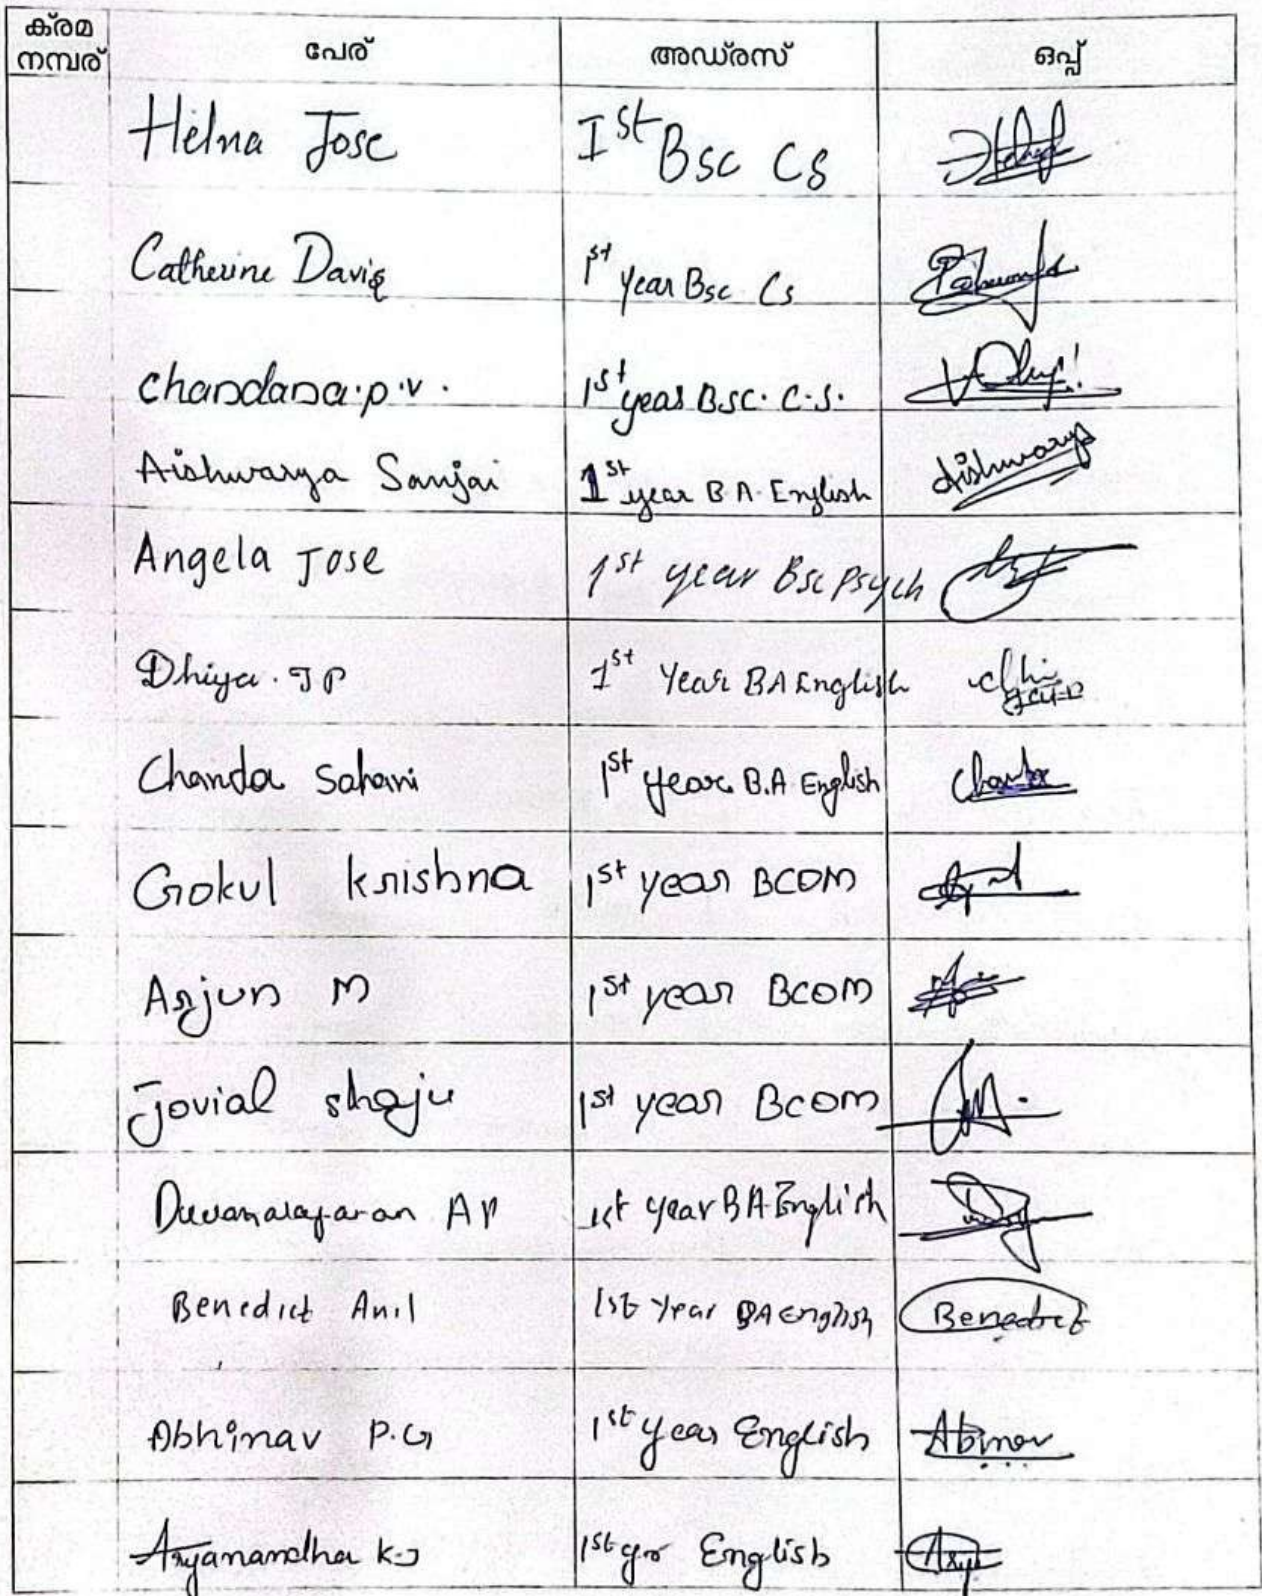 ക്രമ നമ്പര് പേര് അഡ്രസ് ഒപ്പ്
Helna Jose Ist Bsc CS
Catherine Davis 1st year Bsc Cs
Chandana.p.v. 1st year BSC. C.S.
Aishwarya Sanjai 1st year B A. English Aishwarya
Angela Jose 1st year Bsc Psych
Dhiya. J P 1st Year BA English
Chanda Sahani 1st year B.A English Chanda
Gokul krishna 1st year BCOM
Arjun M 1st year BCOM
Jovial shaju 1st year BCOM
Devanarayanan A P 1st year BA English
Benedict Anil 1st Year BA English Benedict
Abhinav P.G 1st year English Abinav
Aryanandha K.J 1st yr English Arya